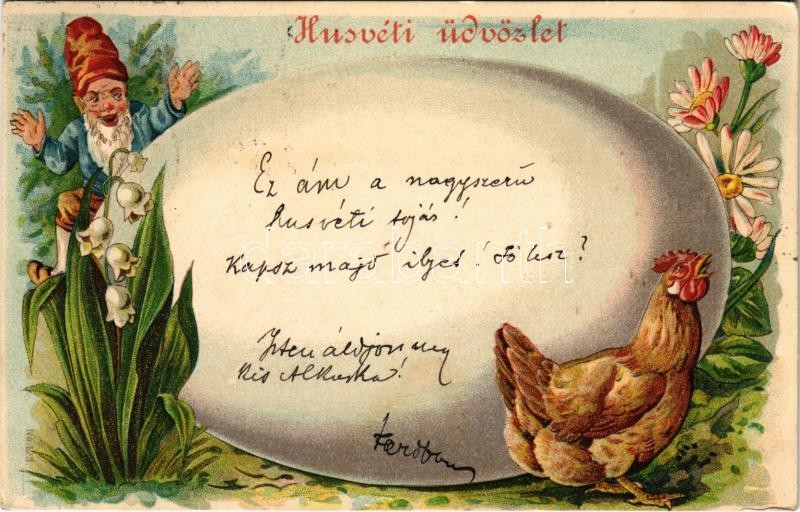 Husvéti üdvözlet
Ez ám a nagyszerű
husvéti tojás!
Kapsz majd ilyet! Jó lesz?
Isten áldjon meg
kis
darabanth